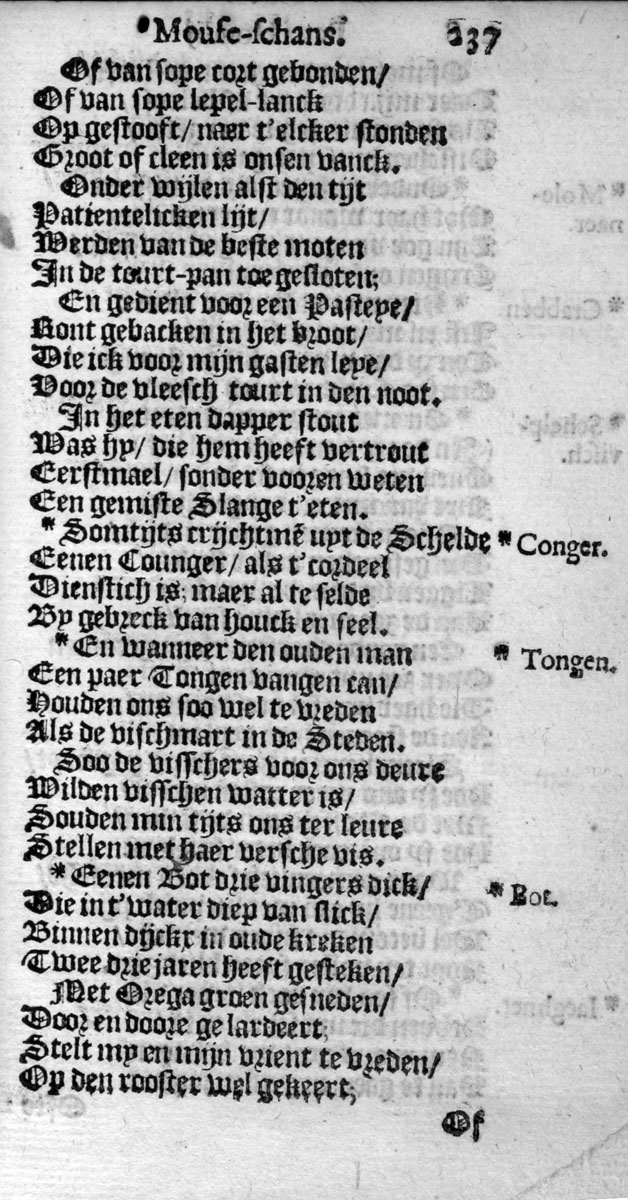 *Mouse-schans. 237
Of van sope cort gebonden/
Of van sope lepel-lanck
Op gestooft/ naer t'elcker stonden
Groot of cleen is onsen vanck.
Onder wijlen alst den tijt
Patientelicken lijt/
Werden van de beste moten
In de tourt-pan toe gesloten;
En gedient voor een Pasteye/
Ront gebacken in het broot/
Die ick voor mijn gasten leye/
Voor de vleesch tourt in den noot.
In het eten dapper stout
Was hy/ die hem heeft vertrout
Eerstmael/ sonder vooren weten
Een gemiste Slange t'eten.
* Somtijts crijchtmẽ uyt de Schelde * Conger.
Eenen Counger/ als t'cordeel
Dienstich is; maer al te selde
By gebreck van houck en seel.
* En wanneer den ouden man * Tongen.
Een paer Tongen vangen can/
Houden ons soo wel te vreden
Als de vischmart in de Steden.
Soo de visschers voor ons deure
Wilden visschen watter is/
Souden min tijts ons ter leure
Stellen met haer versche vis.
* Eenen Bot drie vingers dick/ * Bot.
Die in t'water diep van slick/
Binnen dijckx in oude kreken
Twee drie jaren heeft gesteken/
Met Orega groen gesneden/
Door en doore gelardeert;
Stelt my en mijn vrient te vreden/
Op den rooster wel gekeert;
Of